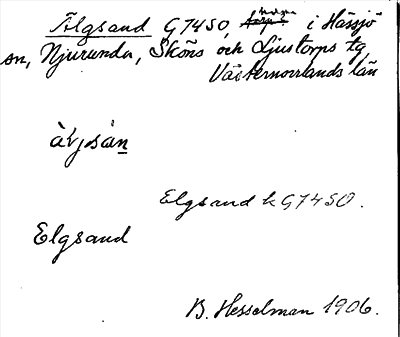 Älgsand G7450, i Hässjö
sn, Njurunda, Sköns och Ljustorps tg
Västernorrlands län
àljsàn
Elgsand k G7450.
Elgsand
B. Hesselman 1906.